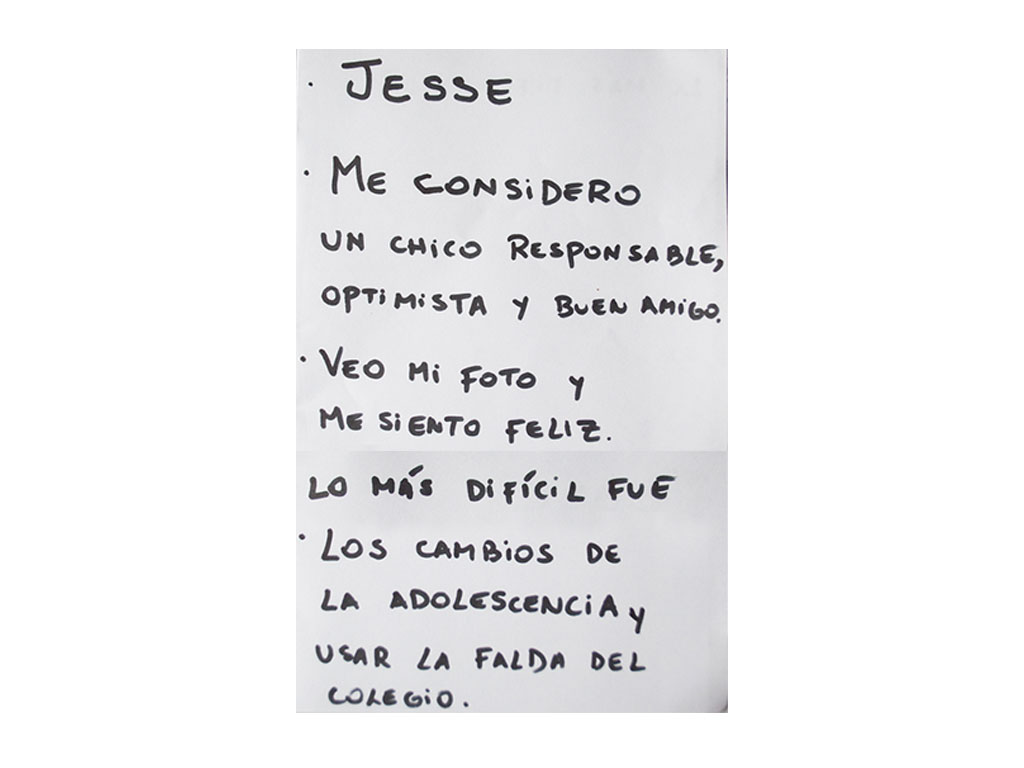 · JESSE
· ME CONSIDERO
UN CHICO RESPONSABLE,
OPTIMISTA Y BUEN AMIGO.
· VEO MI FOTO Y
ME SIENTO FELIZ.
LO MÁS DIFÍCIL FUE
· LOS CAMBIOS DE
LA ADOLESCENCIA Y
USAR LA FALDA DEL
COLEGIO.